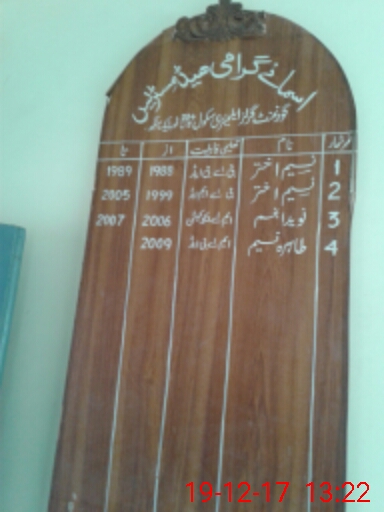 اسمائے گرامی ہیڈ مسٹریس
گورنمنٹ گرلز ایلیمنٹری سکول
نمبر شمار نام تعلیمی قابلیت از تا
1 نسیم اختر بی اے بی ایڈ 1988 1989
2 نسیم اختر بی اے ایم ایڈ 1999 2005
3 نوید انجم ایم اے 2006 2007
4 طاہرہ نسیم ایم اے بی ایڈ 2009
19-12-17 13:22